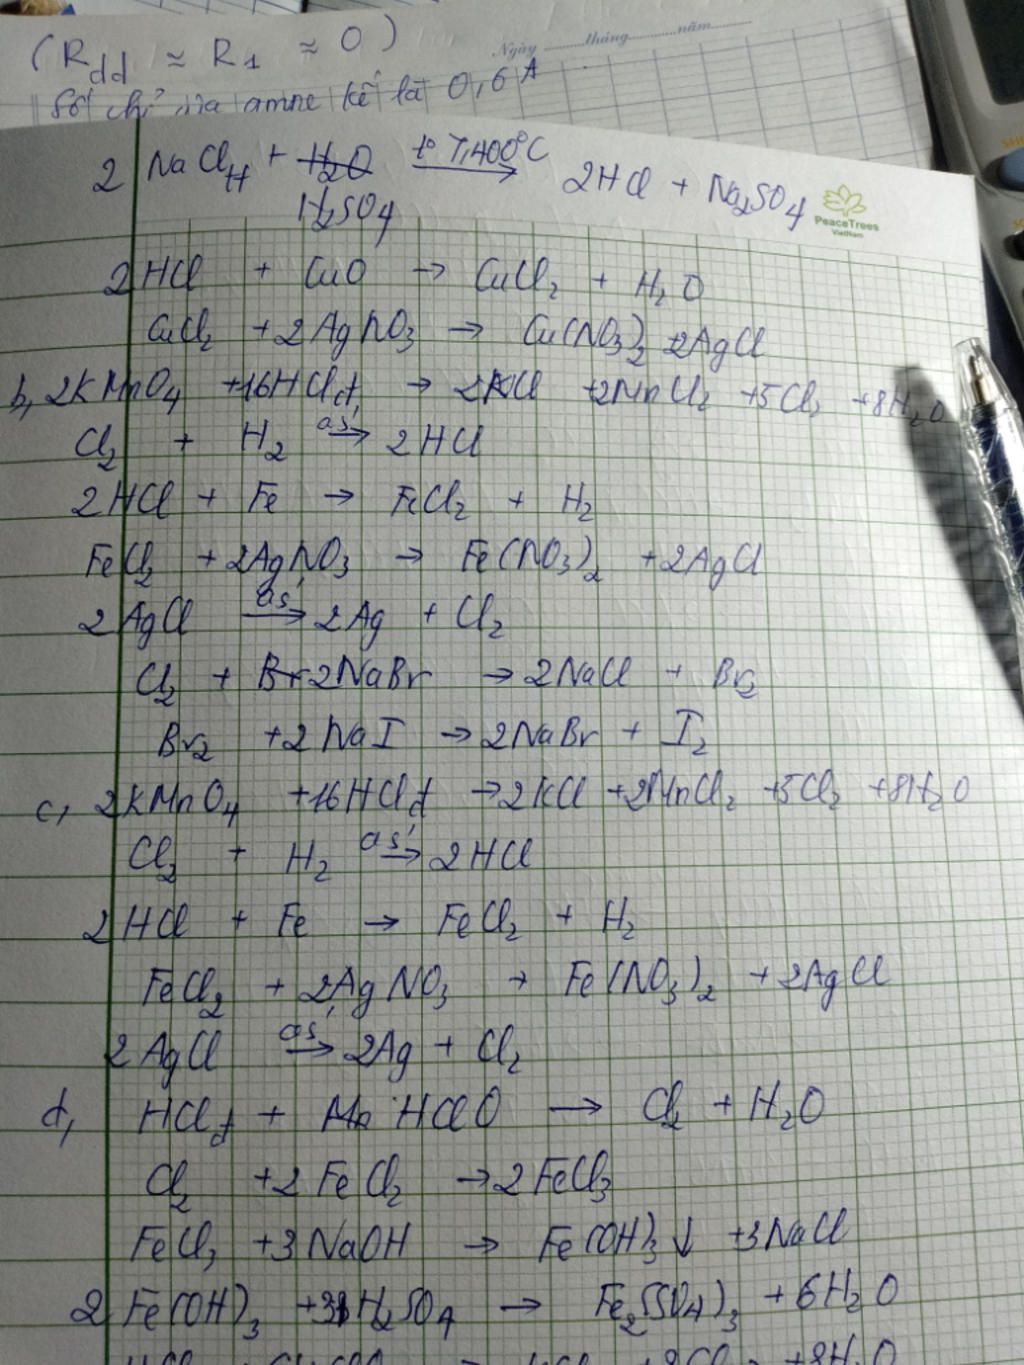 (Rdd ≈ R1 ≈ 0)
Ngày ........... tháng ........... năm ...........
Số chỉ của ampe kế là 0,6 A
2 NaClH + H2O t° ≥ 400°C → 2HCl + Na2SO4
H2SO4
PeaceTrees
VietNam
2HCl + CuO → CuCl2 + H2O
CuCl2 + 2AgNO3 → Cu(NO3)2 + 2AgCl
b, 2KMnO4 + 16HClđ → 2KCl + 2MnCl2 + 5Cl2 + 8H2O
Cl2 + H2 as → 2HCl
2HCl + Fe → FeCl2 + H2
FeCl2 + 2AgNO3 → Fe(NO3)2 + 2AgCl
2AgCl as → 2Ag + Cl2
Cl2 + Br 2NaBr → 2NaCl + Br2
Br2 + 2NaI → 2NaBr + I2
c, 2KMnO4 + 16HClđ → 2KCl + 2MnCl2 + 5Cl2 + 8H2O
Cl2 + H2 as → 2HCl
2HCl + Fe → FeCl2 + H2
FeCl2 + 2AgNO3 → Fe(NO3)2 + 2AgCl
2AgCl as → 2Ag + Cl2
d, HClđ + Mn HClO → Cl2 + H2O
Cl2 + 2FeCl2 → 2FeCl3
FeCl3 + 3NaOH → Fe(OH)3↓ + 3NaCl
2Fe(OH)3 + 3H2SO4 → Fe2(SO4)3 + 6H2O